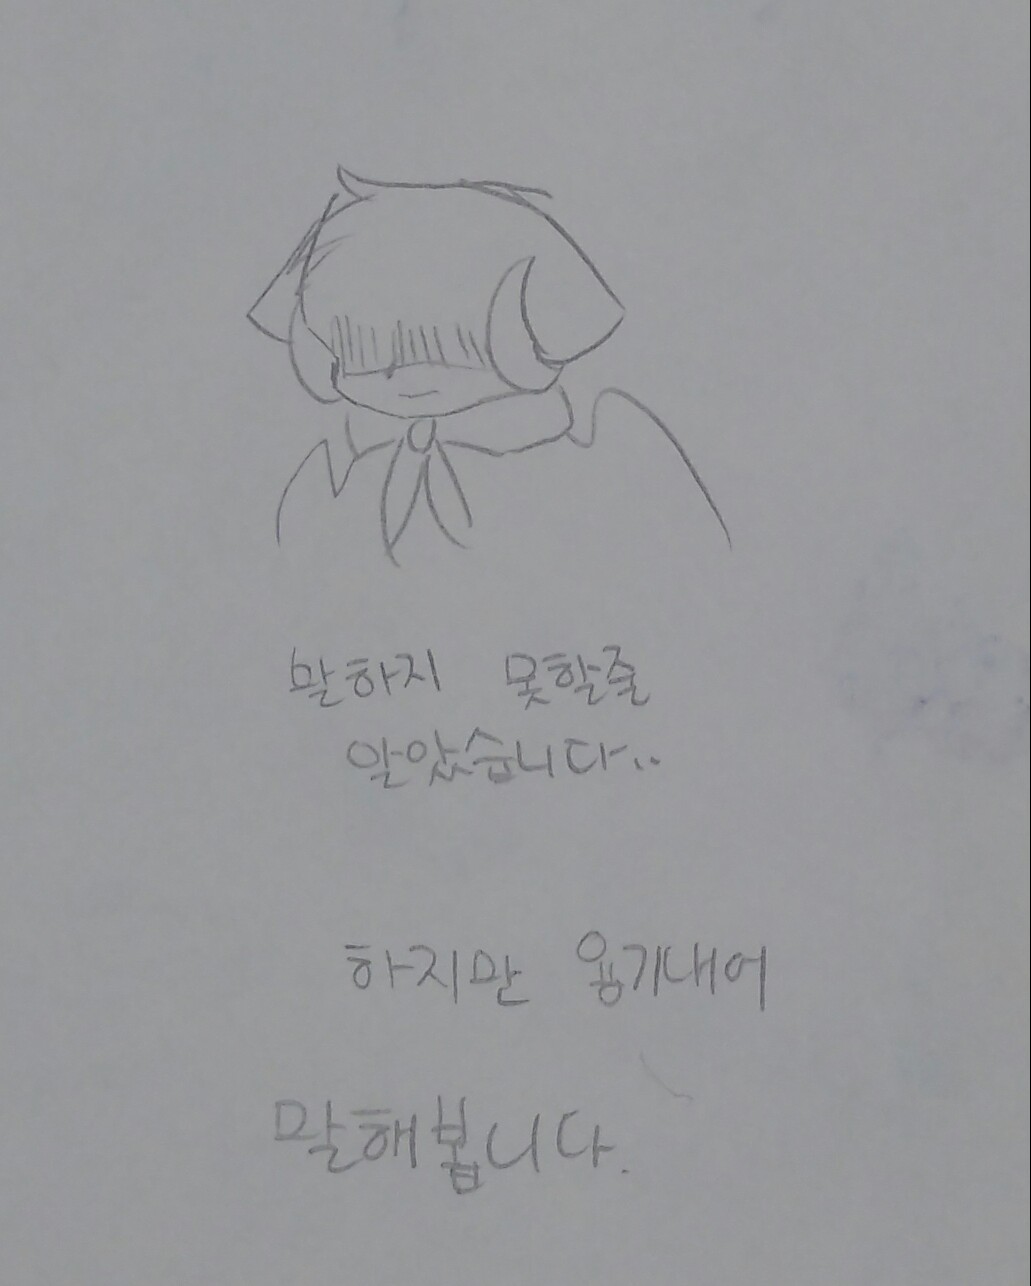 말하지 못할줄
알았습니다..
하지만 용기내어
말해봅니다.